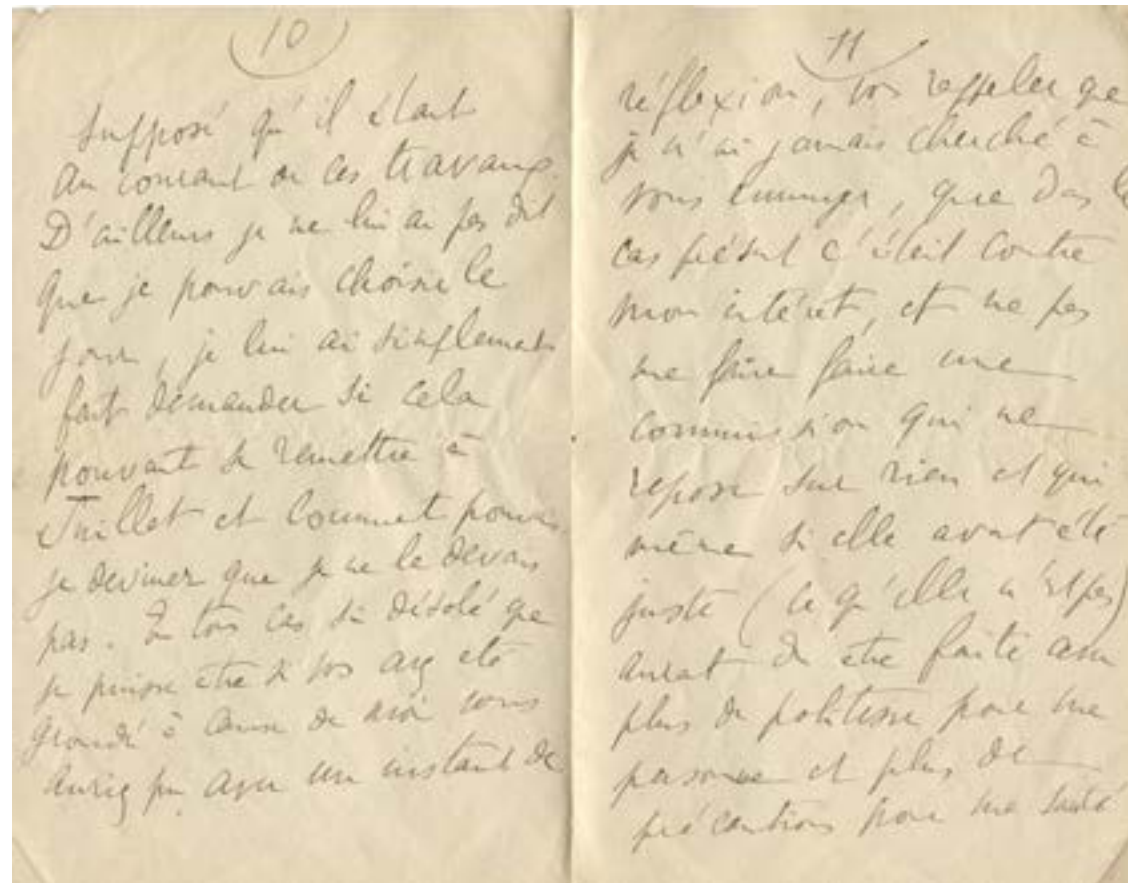 10
supposé qu'il était
au courant de ces travaux.
D'ailleurs je ne lui ai pas dit
que je pouvais choisir le
jour, je lui ai simplement
fait demander si cela
pouvait se remettre à
Juillet et comment pouvais
je deviner que je ne le devais
pas. En tous cas si désolé que
je puisse être si vous avez été
grondé à cause de moi vous
auriez pu avoir un instant de
11
réflexion, vous rappeler que
je n'ai jamais cherché à
vous ennuyer, que dans le
cas présent c'était contre
mon intérêt, et ne pas
me faire faire une
commission qui ne
repose sur rien et qui
même si elle avait été
juste (ce qu'elle n'est pas)
aurait dû être faite avec
plus de politesse pour ma
personne et plus de
précautions pour ma santé